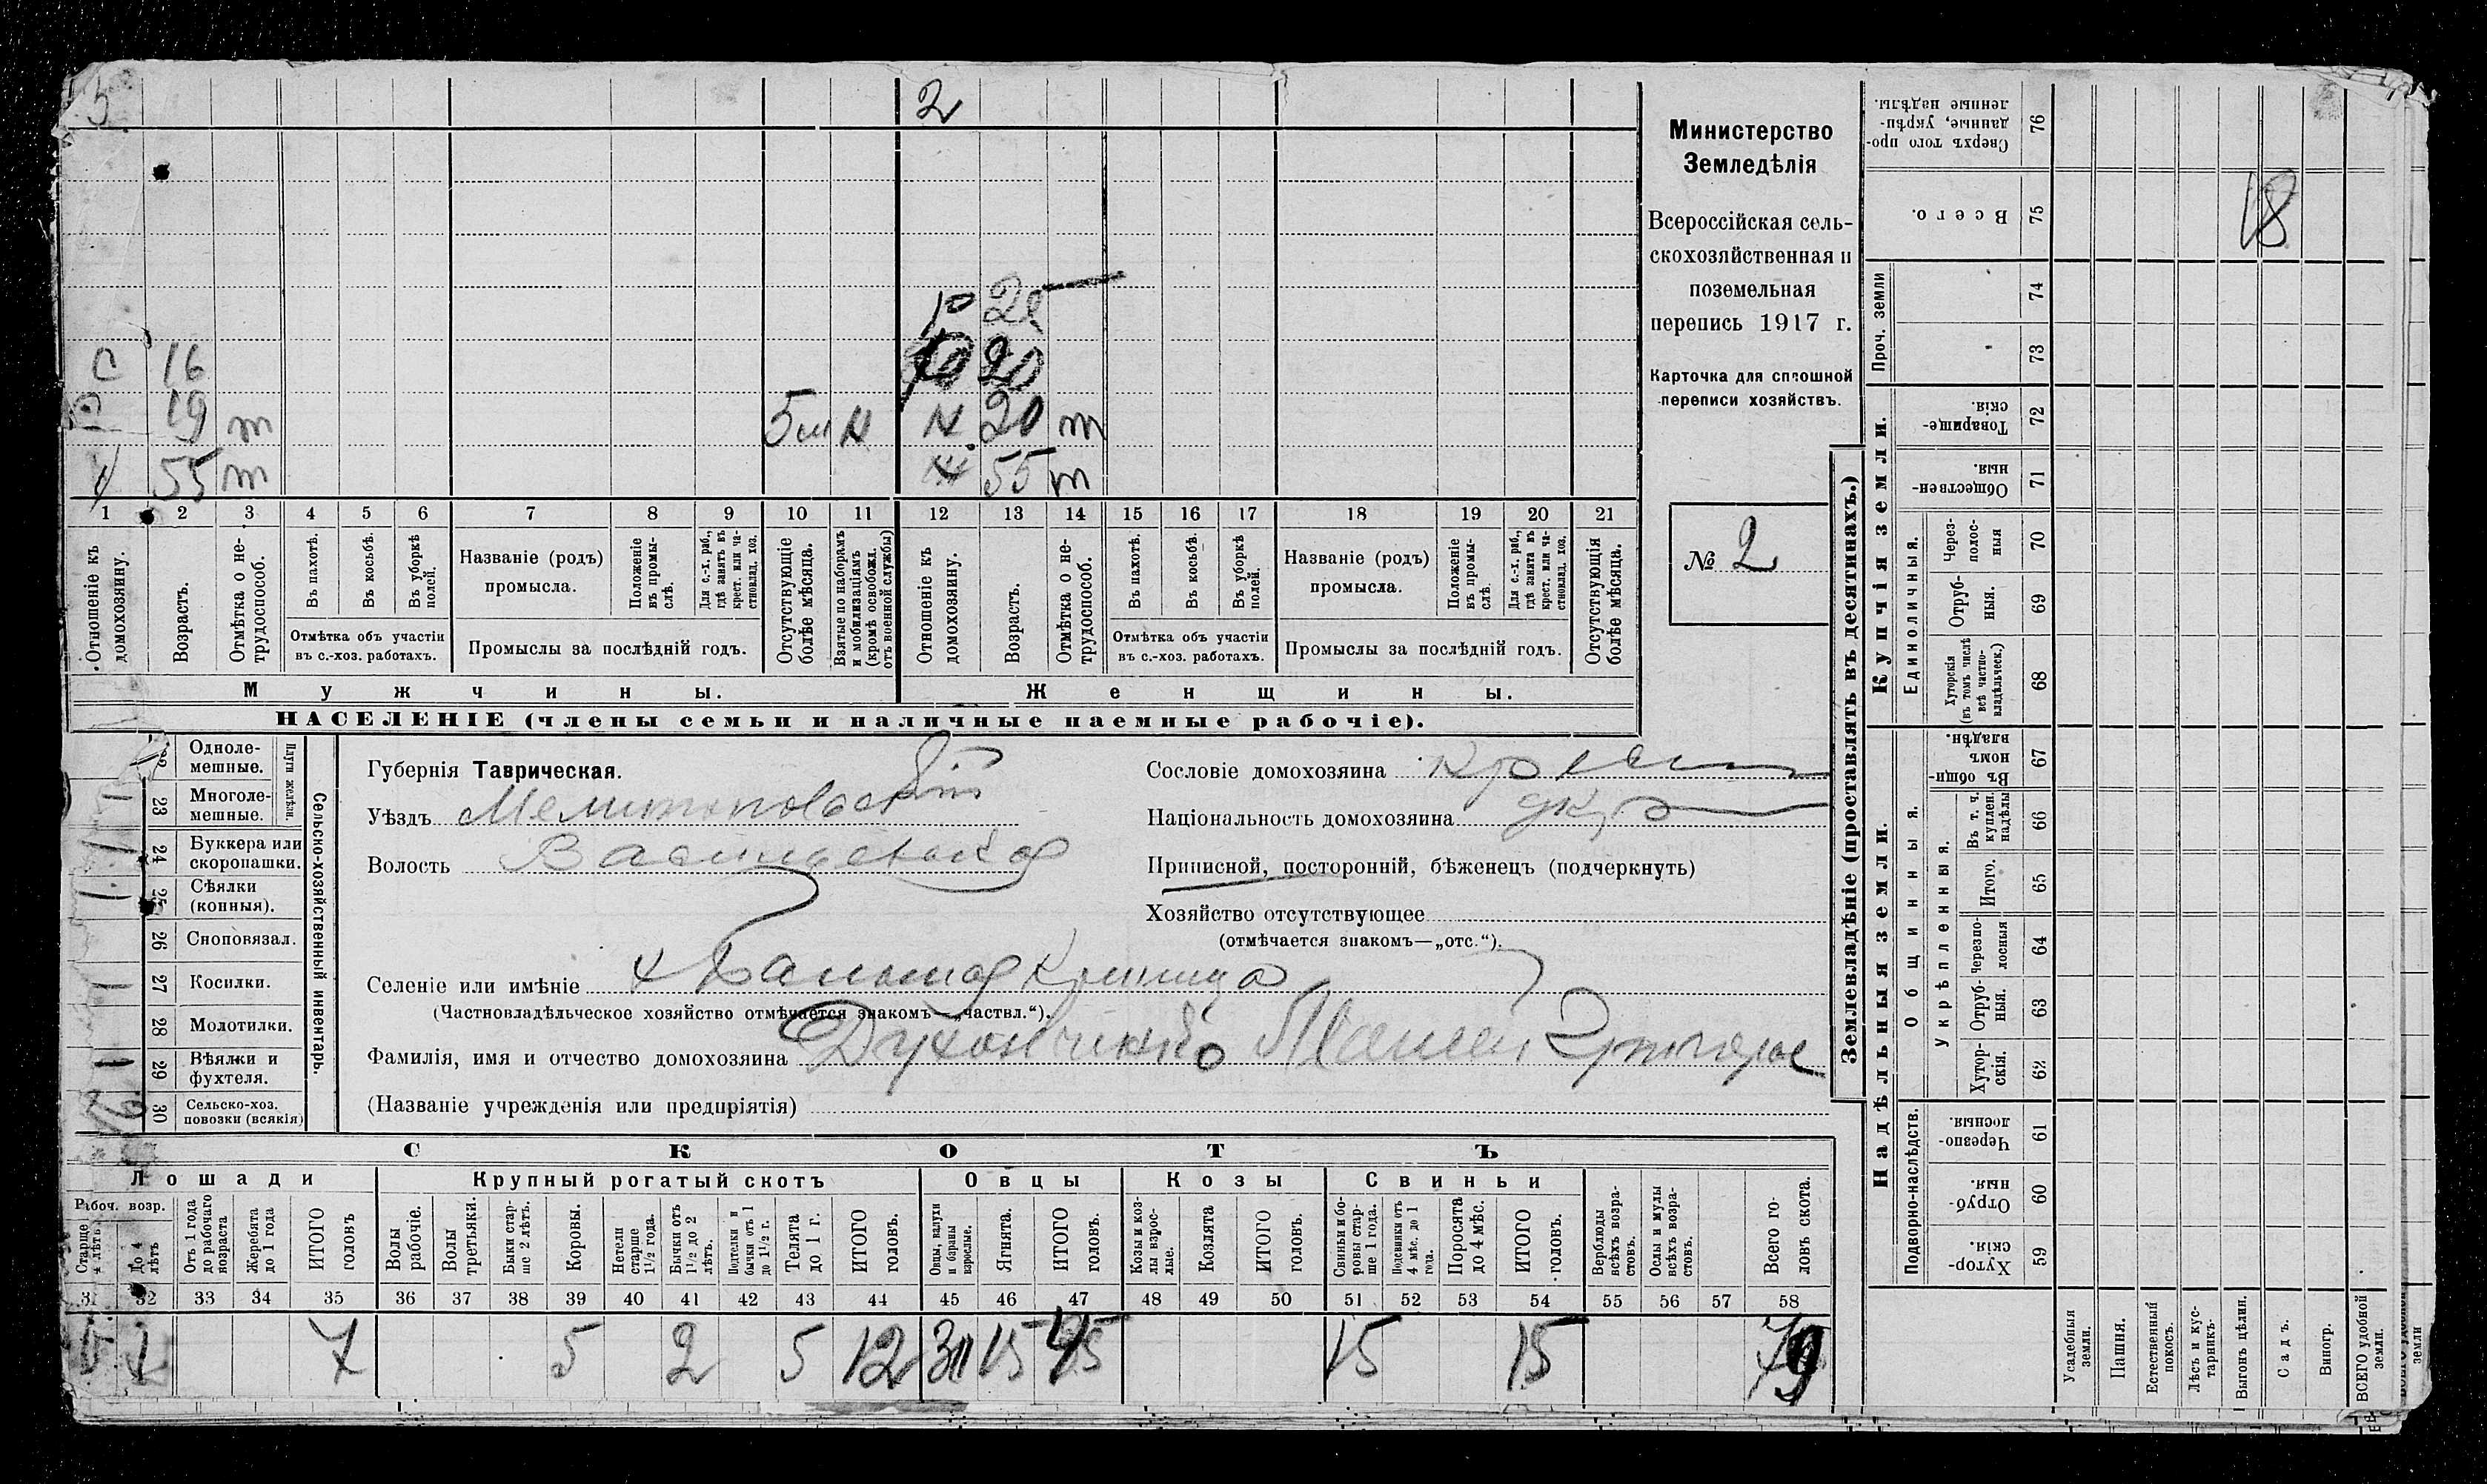 5
2
р 25
С 16
20
19 m
5 м
Н
Ж. 20 m
55 m
55 m
1 2 3 4 5 6 7 8 9 10 11 12 13 14 15 16 17 18 19 20 21
Отношеніе къ домохозяину.
Возрастъ.
Отмѣтка о нетрудоспособ.
Въ пахотѣ.
Въ косьбѣ.
Въ уборкѣ полей.
Отмѣтка объ участіи
въ с.-хоз. работахъ.
Названіе (родъ)
промысла.
Положеніе въ промыслѣ.
Для с.-х. раб., гдѣ занятъ въ крест. или частновлад. хоз.
Промыслы за послѣдній годъ.
Отсутствующіе болѣе мѣсяца.
Взятые по наборамъ и мобилизаціямъ (кромѣ освобожд. отъ военной службы)
Отношеніе къ домохозяину.
Возрастъ.
Отмѣтка о нетрудоспособ.
Въ пахотѣ.
Въ косьбѣ.
Въ уборкѣ полей.
Отмѣтка объ участіи
въ с.-хоз. работахъ.
Названіе (родъ)
промысла.
Положеніе въ промыслѣ.
Для с.-х. раб., гдѣ занята въ крест. или частновлад. хоз.
Промыслы за послѣдній годъ.
Отсутствующія болѣе мѣсяца.
Мужчины.
Женщины.
НАСЕЛЕНІЕ (члены семьи и наличные наемные рабочіе).
Министерство
Земледѣлія
Всероссійская сель-
скохозяйственная и
поземельная
перепись 1917 г.
Карточка для сплошной
переписи хозяйствъ.
№ 2
Сельско-хозяйственный инвентарь.
Плуги желѣзн.
Одноле-
мешные.
23 Многоле-
мешные.
24 Буккера или
скоропашки.
25 Сѣялки
(конныя).
26 Сноповязал.
27 Косилки.
28 Молотилки.
29 Вѣялки и
фухтеля.
30 Сельско-хоз.
повозки (всякія)
Губернія Таврическая.
Уѣздъ Мелитопольскій
Волость Васильевская
Сословіе домохозяина крест
Національность домохозяина
Приписной, посторонній, бѣженецъ (подчеркнуть)
Хозяйство отсутствующее
(отмѣчается знакомъ—„отс.“).
Селеніе или имѣніе
(Частновладѣльческое хозяйство отмѣчается знакомъ—„частвл.“).
Фамилія, имя и отчество домохозяина
(Названіе учрежденія или предпріятія)
СКОТЪ
Лошади
Крупный рогатый скотъ
Овцы
Козы
Свиньи
Рабоч. возр.
Старше 4 лѣтъ
До 4 лѣтъ
Отъ 1 года до рабочаго возраста
Жеребята до 1 года
ИТОГО головъ
Волы рабочіе.
Волы третьяки.
Быки старше 2 лѣтъ.
Коровы.
Нетели старше 1½ года.
Бычки отъ 1½ до 2 лѣтъ.
Подтелки и бычки отъ 1 до 1½ г.
Телята до 1 г.
ИТОГО головъ.
Овцы, валухи и бараны взрослые.
Ягнята.
ИТОГО головъ.
Козы и козлы взрослые.
Козлята
ИТОГО головъ.
Свиньи и боровы старше 1 года.
Подсвинки отъ 4 мѣс. до 1 года.
Поросята до 4 мѣс.
ИТОГО головъ.
Верблюды всѣхъ возрастовъ.
Ослы и мулы всѣхъ возрастовъ.
Всего головъ скота.
31 32 33 34 35 36 37 38 39 40 41 42 43 44 45 46 47 48 49 50 51 52 53 54 55 56 57 58
1 7 5 2 5 12 30 15 45 15 15 79
Землевладѣніе (проставлять въ десятинахъ.)
Сверхъ того проданные, укрѣпленные надѣлы. 76
Всего. 75
18
Проч. земли
74
73
Купчія земли.
Товарищескія. 72
Общественныя. 71
Единоличныя.
Черезполосныя 70
Отрубныя. 69
Хуторскія (въ томъ числѣ всѣ частновладѣльческ.) 68
Надѣльныя земли.
Общинныя.
Въ общинномъ владѣн. 67
Укрѣпленныя.
Въ т. ч. куплен. надѣлы 66
Итого. 65
Черезполосныя 64
Отрубныя. 63
Хуторскія. 62
Подворно-наслѣдств.
Черезполосныя. 61
Отрубныя. 60
Хуторскія. 59
Усадебныя земли.
Пашня.
Естественный покосъ.
Лѣсъ и кустарникъ.
Выгонъ цѣлин.
Садъ.
Виногр.
ВСЕГО удобной земли.